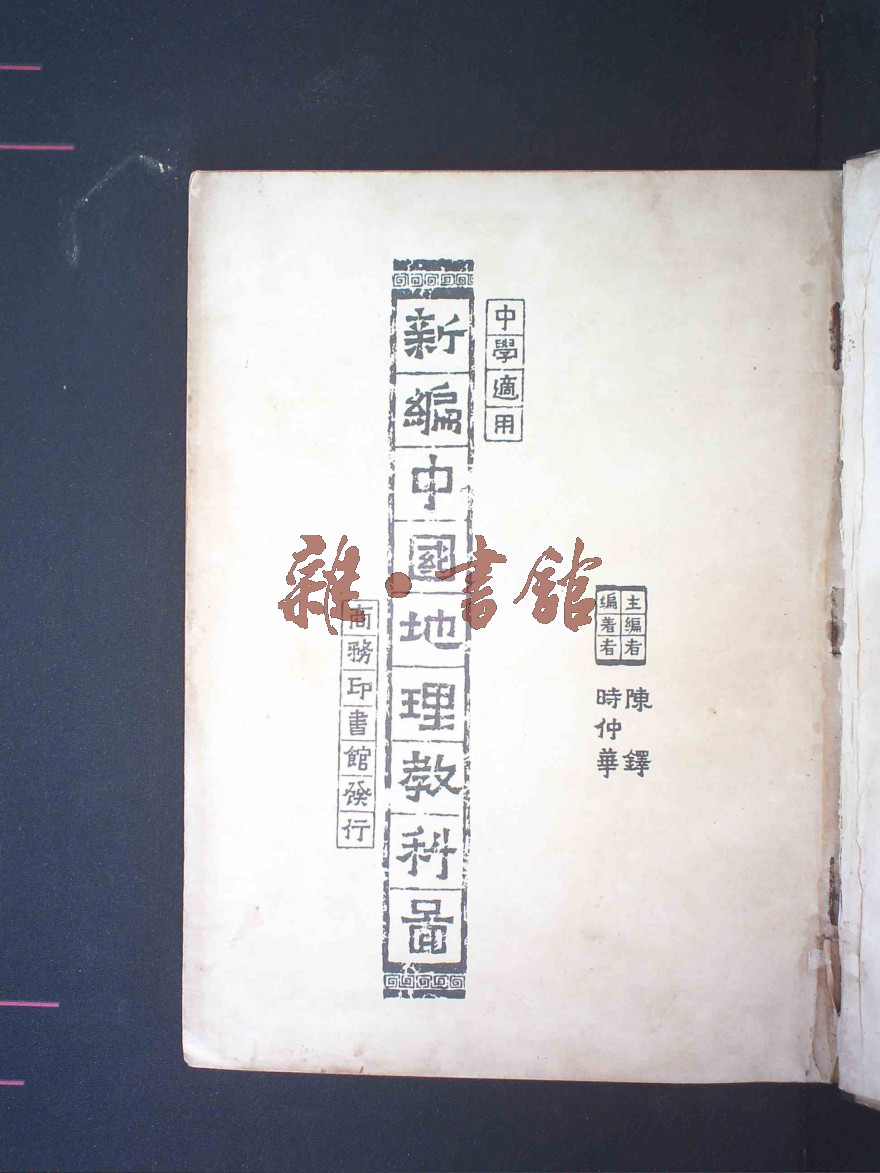 中學適用
新編中國地理教科啚
主編者 陳鐸
編著者 時仲華
商務印書館發行
雜·書館